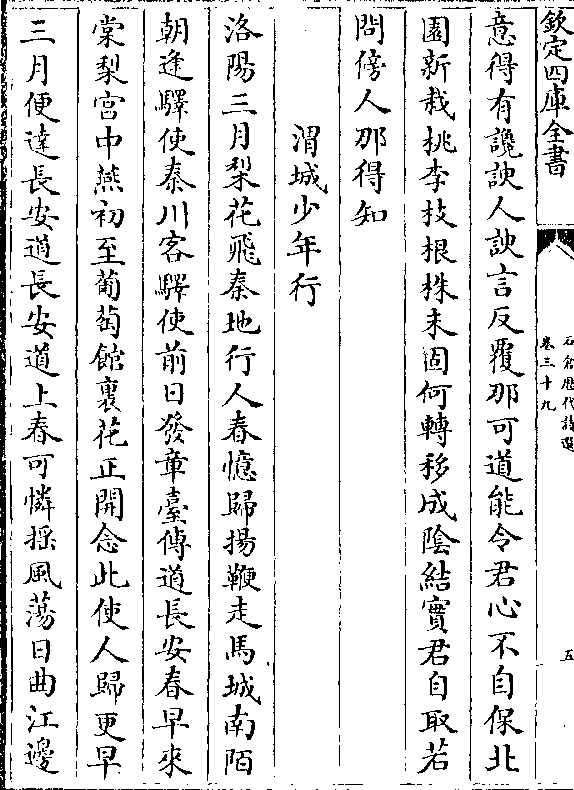 欽定四庫全書
石倉歷代詩選
卷三十九
五
意得有讒諛人諛言反覆那可道能令君心不自保北
園新栽桃李枝根株未固何轉移成陰結實君自取若
問傍人那得知
渭城少年行
洛陽三月梨花飛秦地行人春憶歸揚鞭走馬城南陌
朝逢驛使秦川客驛使前日發章臺傳道長安春早來
棠梨宫中燕初至葡萄館裏花正開念此使人歸更早
三月便達長安道長安道上春可憐搖風蕩日曲江邊